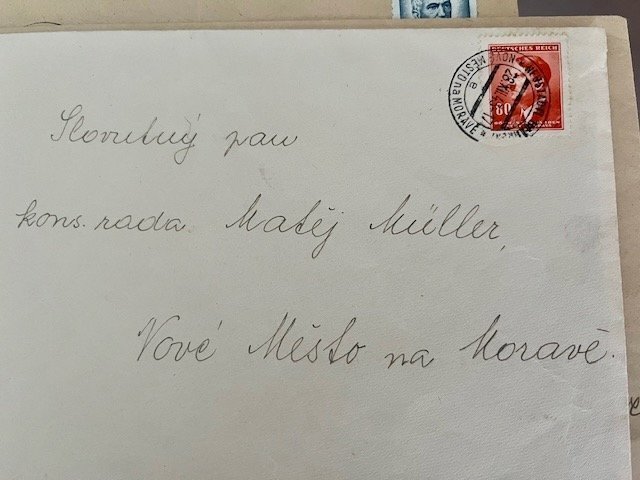 Slovutný pan
kons. rada Matěj Müller,
Nové Město na Moravě.
DEUTSCHES REICH
80
NOVÉ MĚSTO na MORAVĚ